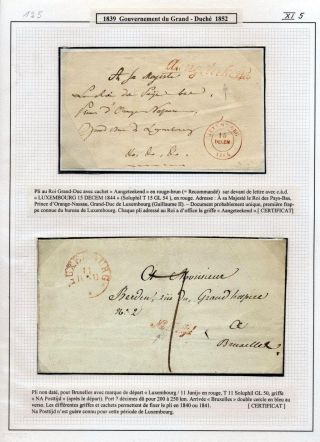 125
1839 Gouvernement du Grand - Duché 1852
XI 5
Aangeteekend
A Sa Majesté
Le Roi des Pays-bas,
Prince d'Orange-Nassau,
Grand Duc de Luxembourg
15
DECEM
1844
Pli au Roi Grand-Duc avec cachet « Aangeteekend » en rouge-brun (= Recommandé) sur devant de lettre avec c.à.d.
« LUXEMBOURG 15 DECEM 1844 » (Soluphil T 15 GL 54 ), en rouge. Adresse : A sa Majesté le Roi des Pays-Bas,
Prince d'Orange-Nassau, Grand-Duc de Luxembourg (Guillaume II). – Document probablement unique, première frappe
connue du bureau de Luxembourg. Chaque pli adressé au Roi a d'office la griffe « Aangeteekend » [ CERTIFICAT]
LUXEMBURG
11
A Monsieur
rue du Grand hospice
N° 2
Na Posttijd
à
Bruxelles
Pli non daté, pour Bruxelles avec marque de départ « Luxemburg / 11 Junijo en rouge, T 11 Soluphil GL 50, griffe
« NA Posttijd » (après le départ). Port 7 décimes dû pour 200 à 250 km. Arrivée « Bruxelles » double cercle en bleu au
verso. Les différentes griffes et cachets permettent de fixer le pli en 1840 ou 1841. [ CERTIFICAT]
Na Posttijd n'est guère connu pour cette période de Luxembourg.